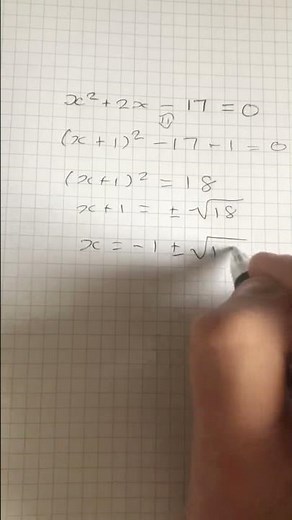 x² + 2x − 17 = 0
(x + 1)² − 17 − 1 = 0
(x+1)² = 18
x + 1 = ± √18
x = − 1 ± √1